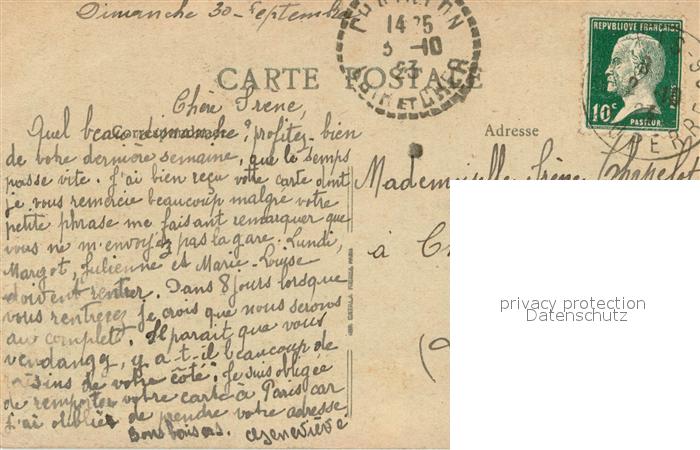 Dimanche 30 Septembre
14 25
3 - 10
23
LOIR ET CHER
REPUBLIQUE FRANÇAISE
10c
PASTEUR
CARTE POSTALE
Chère Irene,
Correspondance
Adresse
Quel beau dimanche ? profitez-bien
de votre dernière semaine, que le temps
passe vite. J'ai bien reçu votre carte dont
je vous remercie beaucoup malgré votre
petite phrase me faisant remarquer que
vous ne m'envoyez pas la gare. Lundi,
Margot, Julienne et Marie-Louyse
doivent rentrer. Dans 8 jours lorsque
vous rentrerez je crois que nous serons
au complet. Il parait que vous
vendangez, y a-t-il beaucoup de
raisins de votre côté. Je suis obligée
de remporter votre carte à Paris car
j'ai oublié de prendre votre adresse.
Bons baisers. Genevieve
Mademoiselle Irène
à
privacy protection
Datenschutz